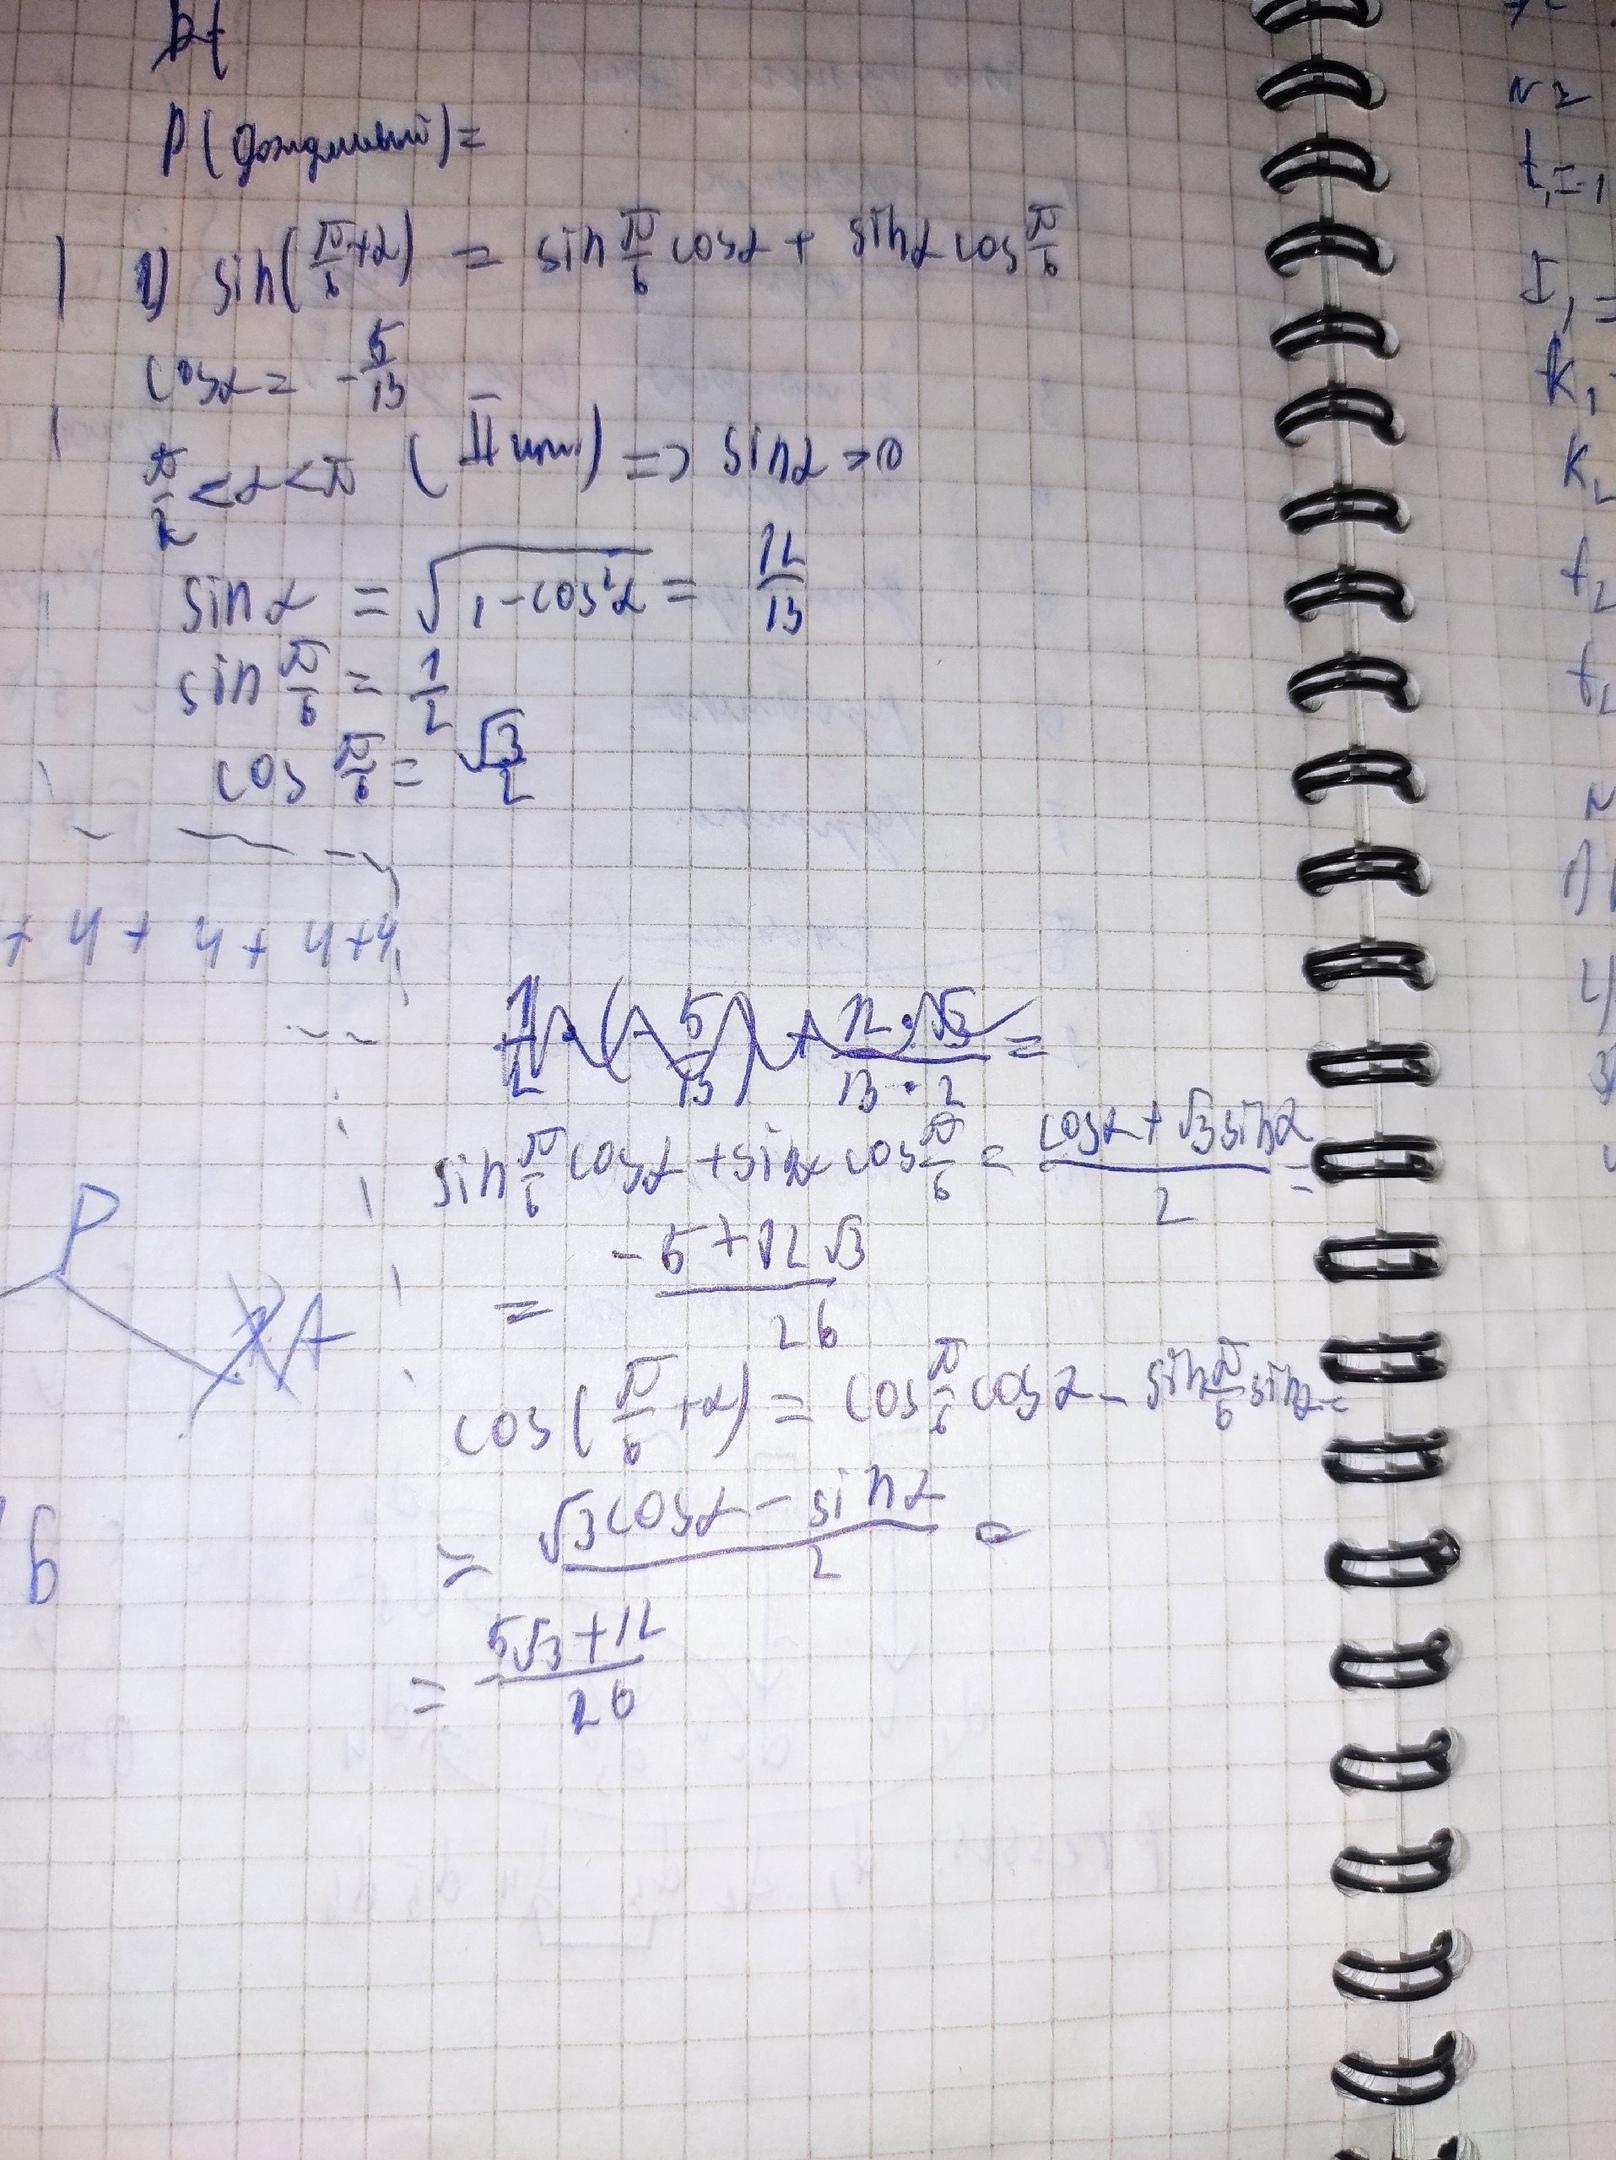 P(дождливый)=
1) sin(π/6+α) = sin π/6 cosα + sinα cos π/6
cosα = -5/13
π/2 < α < π (II чет.) => sinα > 0
sinα = √(1-cos²α) = 12/13
sin π/6 = 1/2
cos π/6 = √3/2
+ 4 + 4 + 4 + 4
sin π/6 cosα + sinα cos π/6 = (cosα + √3 sinα)/2 =
= (-5+12√3)/26
P
A
cos(π/6+α) = cos π/6 cosα - sin π/6 sinα =
= (√3cosα - sinα)/2 =
6
= (5√3+12)/26
N2
t₁=-1
I₁=
k₁
K₂
t₂
t₂